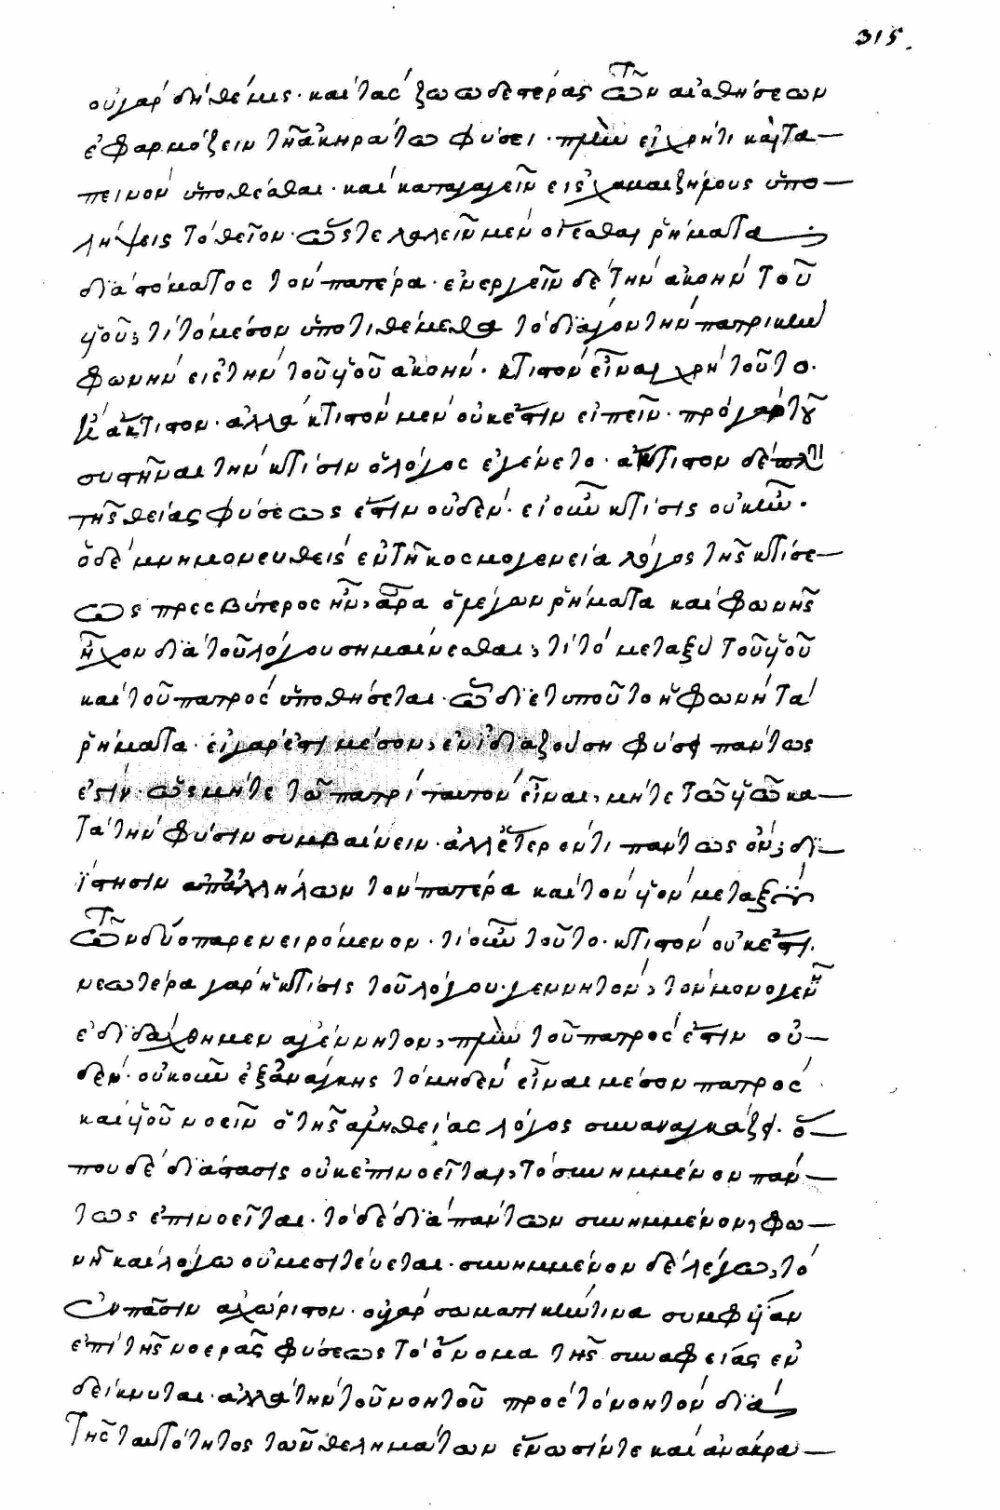 315.
οὐ γὰρ δὴ θέμις· καὶ τὰς ζωωδεστέρας τῶν αἰσθήσεων
ἐφαρμόζειν τῆ ἀκηράτω φύσει· πλὴν εἰ χρή τι καὶ τα–
πεινὸν ὑποθέσθαι· καὶ καταγαγεῖν εἰς χαμαιζήλους ὑπο–
λήψεις τὸ θεῖον· ὥστε λαλεῖν μὲν οἴεσθαι ῥήματα
διὰ στόματος τὸν πατέρα· ἐνεργεῖν δὲ τὴν ἀκοὴν τοῦ
υἱοῦ; τί τὸ μέσον ὑποτιθέμεθα τὸ διάγον τὴν πατρικὴν
φωνὴν εἰς τὴν τοῦ υἱοῦ ἀκοήν· κτιστὸν εἶναι χρὴ τοῦτο·
ἢ ἄκτιστον· ἀλλὰ κτιστὸν μὲν οὐκ ἔστιν εἰπεῖν· πρὸ γὰρ τοῦ
συστῆναι τὴν κτίσιν ὁ λόγος ἐγένετο· ἄκτιστον δὲ πλὴν
τῆς θείας φύσεως ἔστιν οὐδέν· εἰ οὖν κτίσις οὐκ ἦν·
ὁ δὲ μνημονευθεὶς ἐν τῆ κοσμογενεία λόγος τῆς κτίσε–
ως πρεσβύτερος ἦν, ἆρα ὁ λέγων ῥήματα καὶ φωνῆς
ἦχον διὰ τοῦ λόγου σημαίνεσθαι, τί τὸ μεταξὺ τοῦ υἱοῦ
καὶ τοῦ πατρὸς ὑποθήσεται· ὧ διετυποῦτο ἡ φωνὴ τὰ
ῥήματα· εἰ γάρ ἐστι μέσον, ἐν ἰδιαζούση φύσει πάντως
ἐστίν· ὡς μήτε τῶ πατρὶ ταυτὸν εἶναι, μήτε τῶ υἱῶ κα–
τὰ τὴν φύσιν συμβαίνειν· ἀλλ' ἕτερόν τι πάντως ὄν, δι–
ΐστησιν ἀπ' ἀλλήλων τὸν πατέρα καὶ τὸν υἱὸν μεταξὺ
τῶν δύο παρενειρόμενον· τί οὖν τοῦτο· κτιστὸν οὐκ ἔστι·
νεωτέρα γὰρ ἡ κτίσις τοῦ λόγου· γεννητόν, τὸν μονογενῆ
ἐδιδάχθημεν ἀγέννητον, πλὴν τοῦ πατρός ἐστιν οὐ–
δέν· οὐκοῦν ἐξ ἀνάγκης τὸ μηδὲν εἶναι μέσον πατρὸς
καὶ υἱοῦ νοεῖν ὁ τῆς ἀληθείας λόγος συναναγκάζει· ὅ–
που δὲ διάστασις οὐκ ἐπινοεῖται, τὸ συνημμένον πάν–
τως ἐπινοεῖται· τὸ δὲ διὰ πάντων συνημμένον, φω–
νῆ καὶ λόγω οὐ μεσιτεύεται· συνημμένον δὲ λέγω, τὸ
ἐν πᾶσιν ἀχώριστον· οὐ γὰρ σωματικήν τινα συμφυΐαν
ἐπὶ τῆς νοερᾶς φύσεως τὸ ὄνομα τῆς συναφείας ἐν
δείκνυται· ἀλλὰ τὴν τοῦ νοητοῦ πρὸς τὸ νοητὸν διὰ
τῆς ταυτότητος τῶν θελημάτων ἕνωσίν τε καὶ ἀνάκρα–